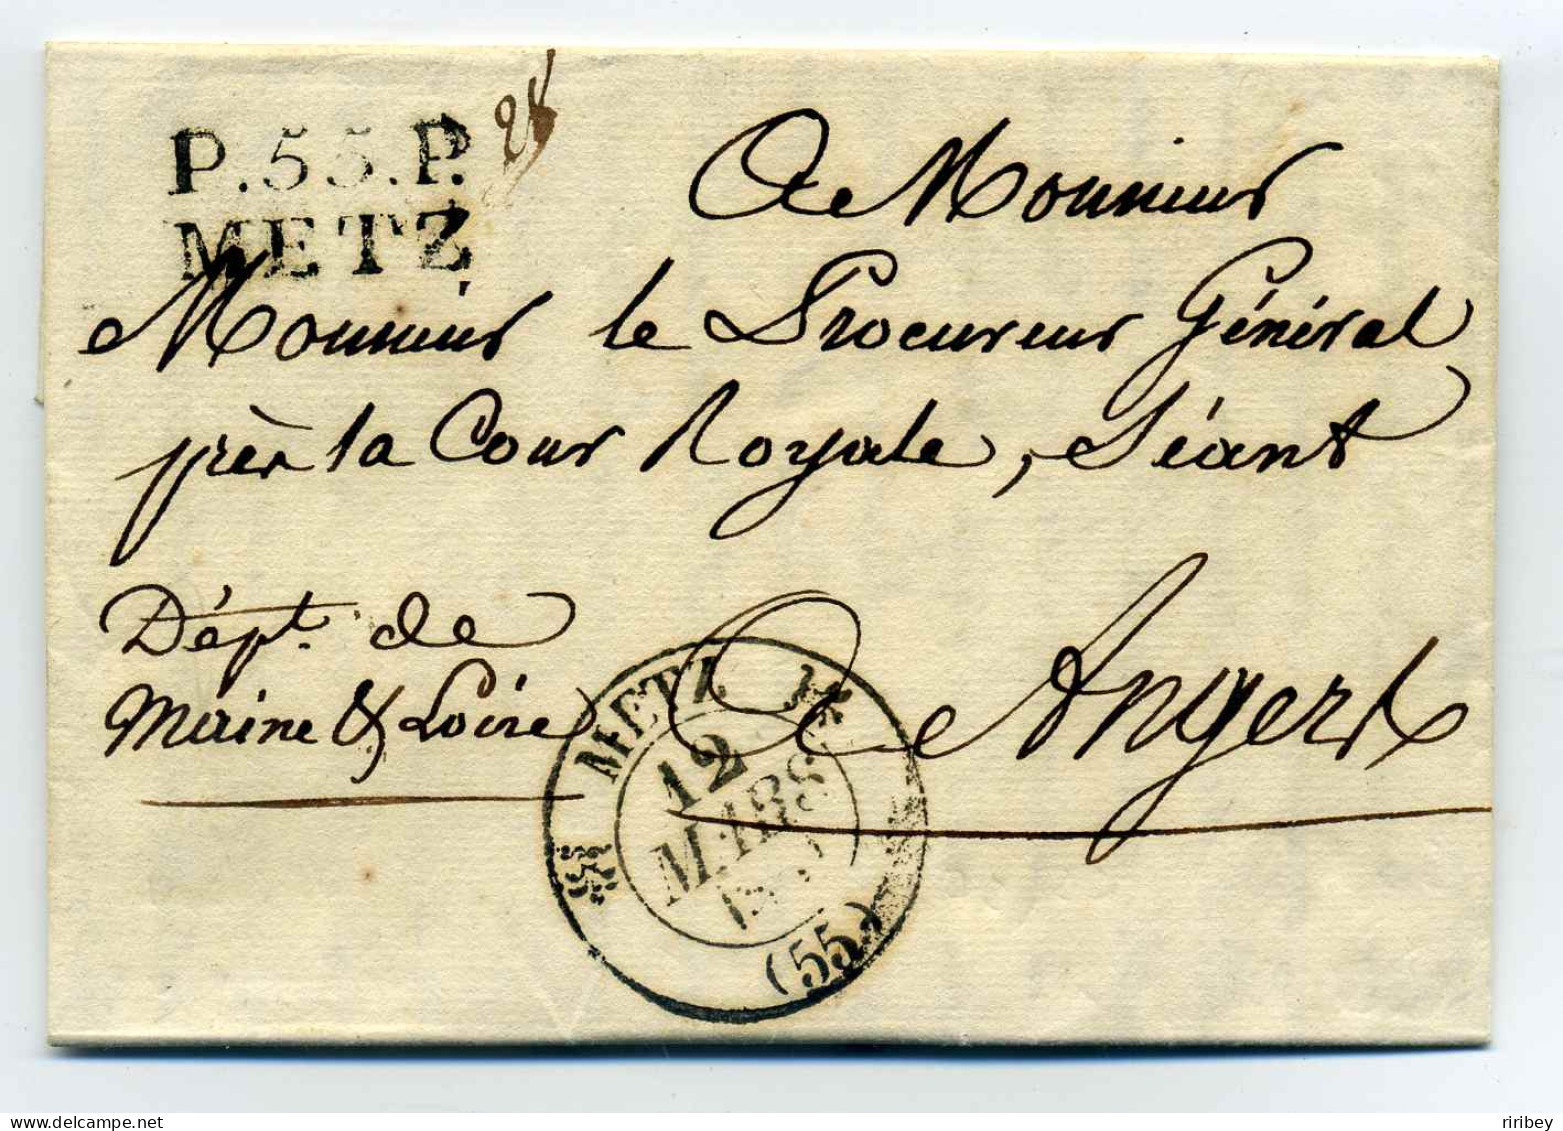 P.55.P.
METZ
A Monsieur
Monsieur le Procureur Général
près la Cour Royale, Séant
Dépt. de
Maine & Loire
A Angers
METZ
12
MARS
(55)
delcampe.net
riribey